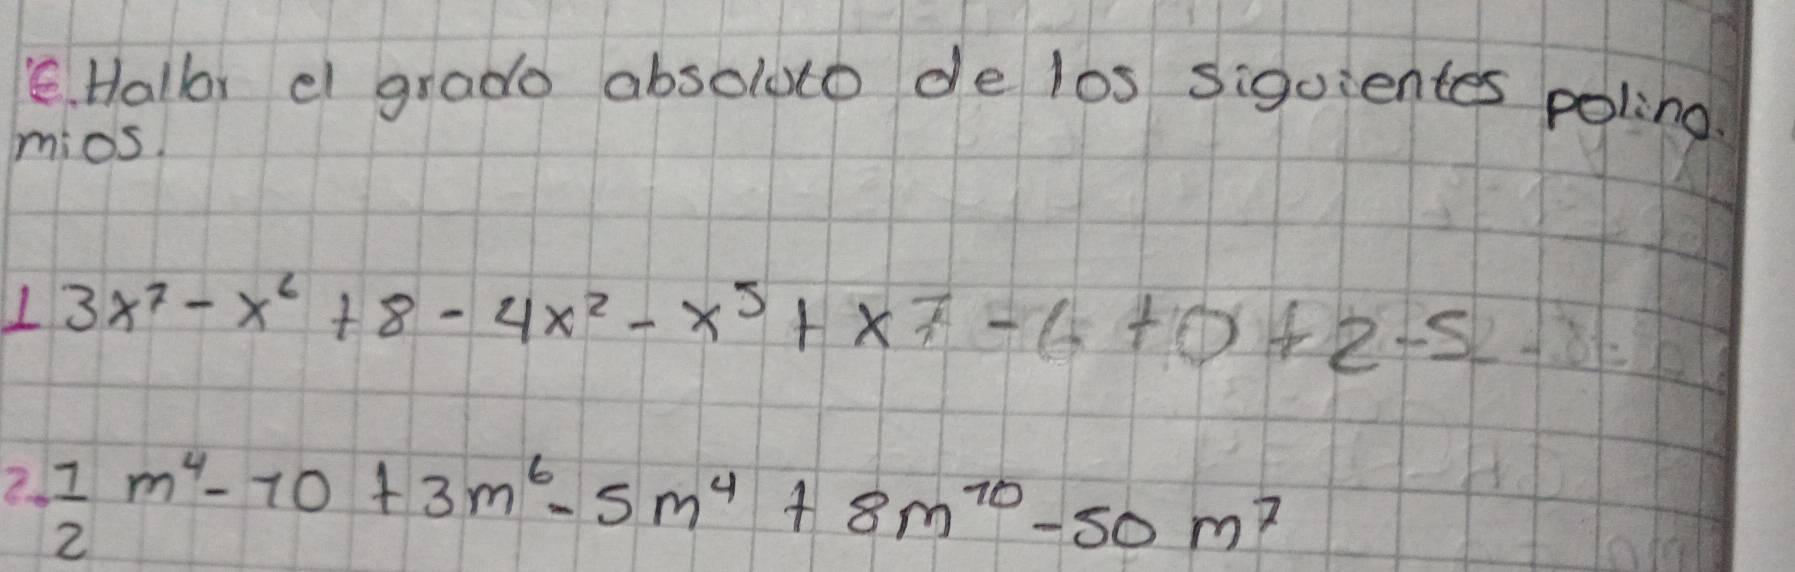 6. Hallar el grado absoluto de los siguientes polino-
mios.
1 3x⁷ - x⁶ + 8 - 4x² - x⁵ + x 7 - 6 + 0 + 2 - 5
2. 1/2 m⁴ - 10 + 3m⁶ - 5m⁴ + 8m¹⁰ - 50 m⁷